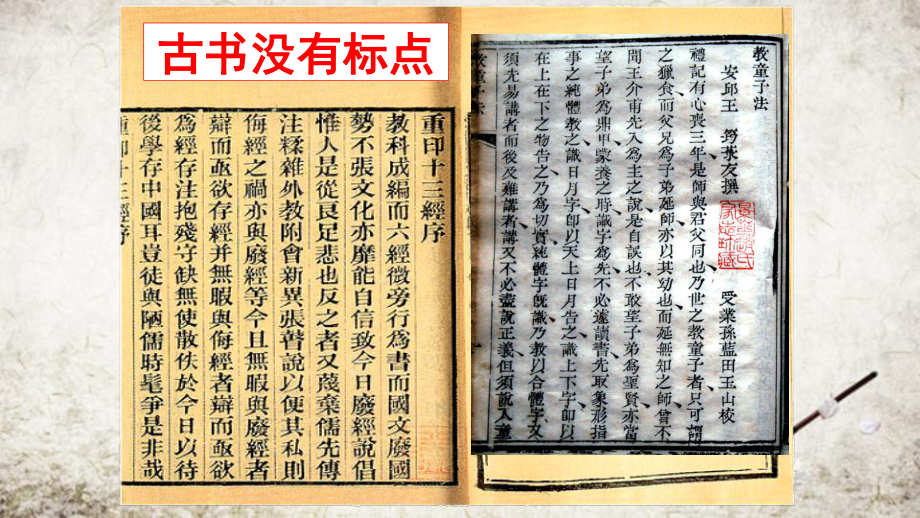 古书没有标点
教童子法
安邱王 筠菉友撰 受業孫藍田玉山校
禮記有心喪三年是師與君父同也乃世之教童子者只可謂
之獵食而父兄爲子弟延師亦以其幼也而延無知之師曾不
聞王介甫先入爲主之說是自誤也不敢望子弟爲聖賢亦當
望子弟爲鼎甲蒙養之時識字爲先不必遽讀書先取象形指
事之純體教之識日月字即以天上日月告之識上下字即以
在上在下之物告之乃爲切實純體字既識乃教以合體字又
須先易講者而後及難講者講又不必盡說正義但須說入童
教童子法
重印十三經序
教科成編而六經微旁行爲書而國文廢國
勢不張文化亦靡能自信致今日廢經說倡
惟人是從良足悲也反之者又蔑棄儒先傳
注糅雜外教附會新異張善說以便其私則
侮經之禍亦與廢經等今且無暇與廢經者
辯而亟欲存經并無暇與侮經者辯而亟欲
爲經存注抱殘守缺無使散佚於今日以待
後學存中國耳豈徒與陋儒時髦爭是非哉
重印十三經序